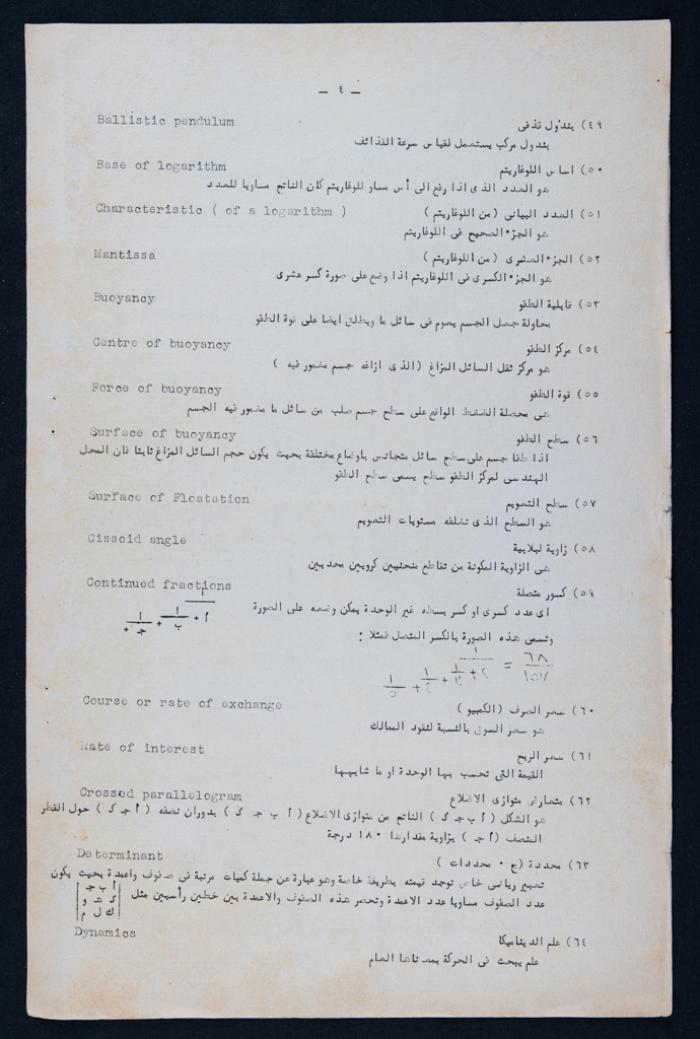 — ٤ —
Ballistic pendulum ٤٩) بندول قذفى
بندول مركب يستعمل لقياس سرعة القذائف
Base of logarithm ٥٠) اساس اللوغاريتم
هو العدد الذى اذا رفع الى أس مساو للوغاريتم كان الناتج مساويا للعدد
Characteristic ( of a logarithm ) ٥١) العدد البيانى (من اللوغاريتم )
هو الجزء الصحيح فى اللوغاريتم
Mantissa ٥٢) الجزء العشرى (من اللوغاريتم )
هو الجزء الكسرى فى اللوغاريتم اذا وضع على صورة كسر عشرى
Buoyancy ٥٣) قابلية الطفو
محاولة جعل الجسم يعوم فى سائل ما ويطلق ايضا على قوة الطفو
Centre of buoyancy ٥٤) مركز الطفو
هو مركز ثقل السائل المزاغ (الذى ازاغه جسم مغمور فيه )
Force of buoyancy ٥٥) قوة الطفو
هى محصلة الضغط الواقع على سطح جسم صلب من سائل ما مغمور فيه الجسم
Surface of buoyancy ٥٦) سطح الطفو
اذا طفا جسم على سطح سائل متجانس باوضاع مختلفة بحيث يكون حجم السائل المزاغ ثابتا فان المحل
الهندسى لمركز الطفو سطح يسمى سطح الطفو
Surface of Floatation ٥٧) سطح التعويم
هو السطح الذى تغلفه مستويات التعويم
Cissoid angle ٥٨) زاوية لبلابية
هى الزاوية المكونة من تقاطع منحنيين كرويين محدبين
Continued fractions ٥٩) كسور متصلة
اى عدد كسرى او كسر بسطه غير الوحدة يمكن وضعه على الصورة
١ / أ + ١ / ب + ١ / جـ +
وتسمى هذه الصورة بالكسر المتصل فمثلا :
٦٨ / ١٥٧ = ١ / ٢ + ١ / ٣ + ١ / ٤ + ١ / ٥
Course or rate of exchange ٦٠) سعر الصرف (الكمبيو )
هو سعر السوق بالنسبة لنقود الممالك
Rate of interest ٦١) سعر الربح
القيمة التى تحسب بها الوحدة او ما شابهها
Crossed parallelogram ٦٢) متوازى الاضلاع
هو الشكل ( أ ب جـ د ) الناتج من متوازى الاضلاع ( أ ب جـ د ) بدوران نصفه ( أ جـ د ) حول القطر
المنصف ( أ جـ ) بزاوية مقدارها ١٨٠ درجة
Determinant ٦٣) محددة (ج ٠ محددات )
تعبير رياضى خاص توجد قيمته بطريقة خاصة وهو عبارة عن جملة كميات مرتبة فى صفوف واعمدة بحيث يكون
عدد الصفوف مساويا عدد الاعمدة وتحصر هذه الصفوف والاعمدة بين خطين رأسيين مثل
أ ب جـ
د هـ و
ك ل م
Dynamics ٦٤) علم الديناميكا
علم يبحث فى الحركة بمعناها العام